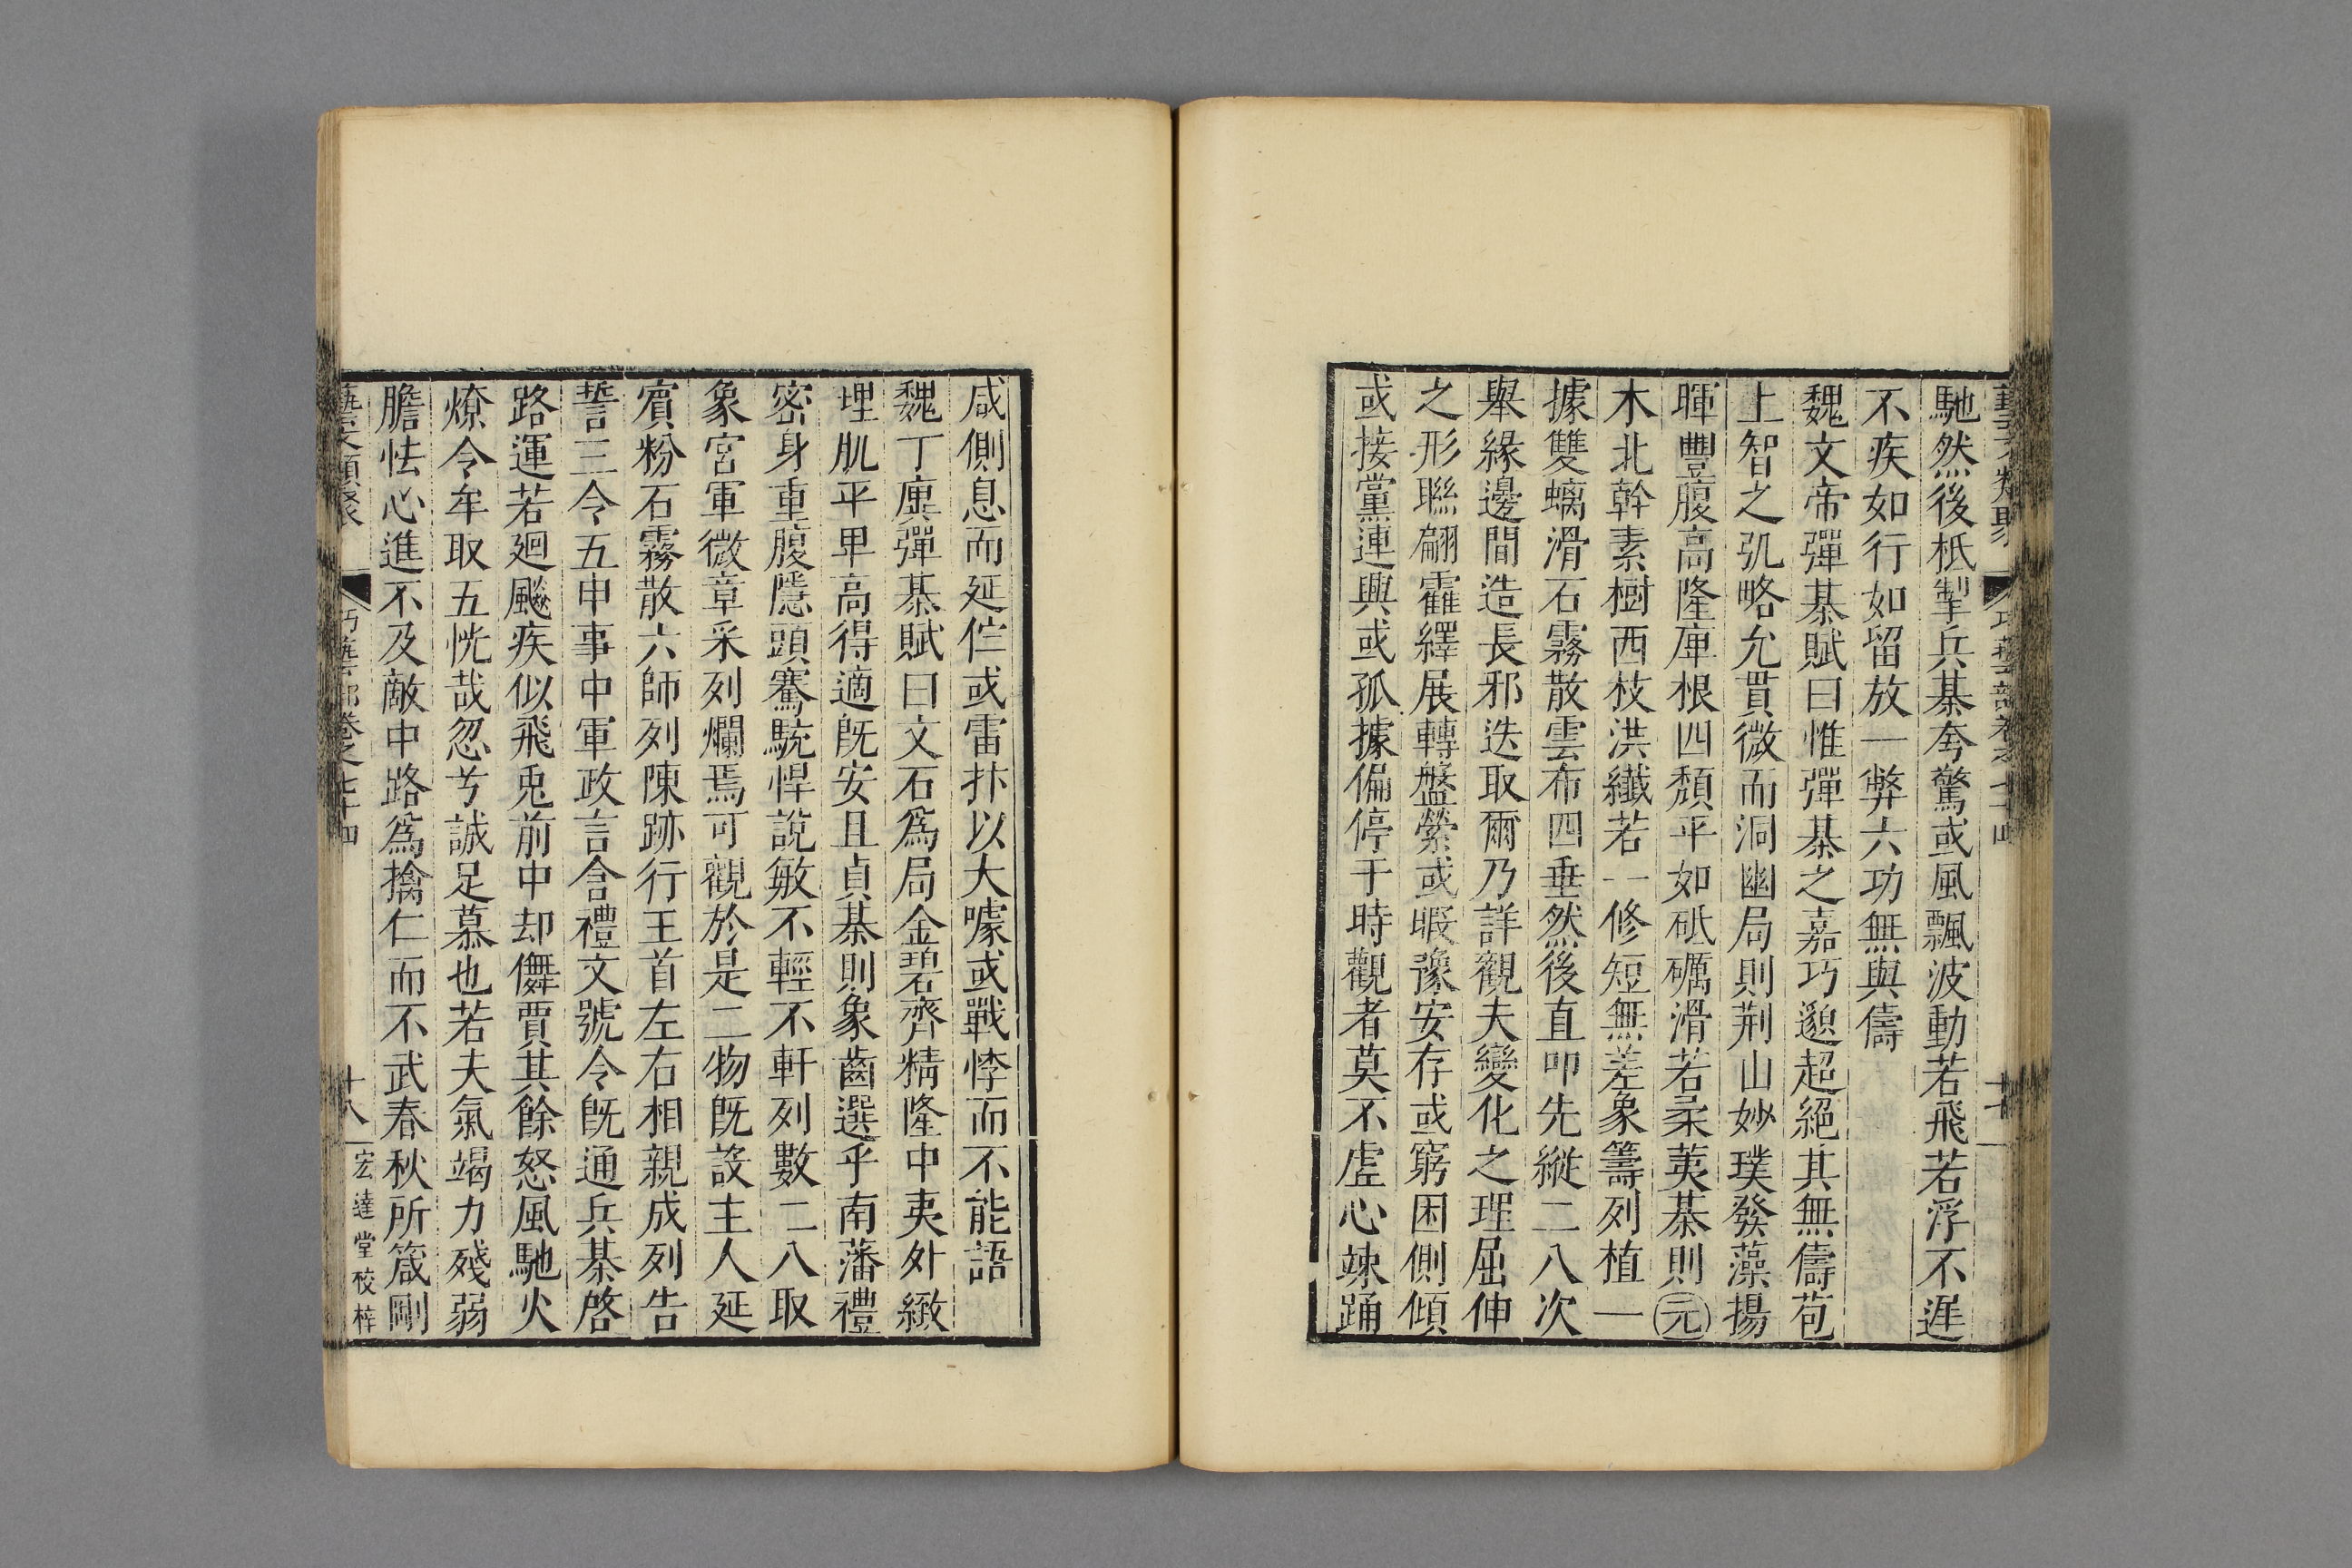 藝文類聚 巧藝部卷之七十四 十七
馳然後柢掣兵棊夸驚或風飄波動若飛若浮不遲
不疾如行如留放一弊六功無與儔
魏文帝彈棊賦曰惟彈棊之嘉巧邈超絕其無儔苞
上智之弘略允貫微而洞幽局則荆山妙璞發藻揚
暉豐腹高隆庳根四頹平如砥礪滑若柔荑棊則元
木北幹素樹西枝洪纖若一修短無差象籌列植一
據雙螭滑石霧散雲布四垂然後直叩先縱二八次
舉緣邊間造長邪迭取爾乃詳觀夫變化之理屈伸
之形聯翩霍繹展轉盤縈或暇豫安存或窮困側傾
或接黨連興或孤據偏停于時觀者莫不虛心竦踊
咸側息而延佇或雷抃以大噱或戰悸而不能語
魏丁廙彈棊賦曰文石爲局金碧齊精隆中夷外緻
理肌平卑高得適旣安且貞棊則象齒選乎南藩禮
密身重腹隱頭騫駮悍說敏不輕不軒列數二八取
象官軍微章采列爛焉可觀於是二物旣設主人延
賓粉石霧散六師列陳跡行王首左右相親成列告
誓三令五申事中軍政言含禮文號令旣通兵棊啓
路運若廻飇疾似飛兎前中却儛賈其餘怒風馳火
燎令牟取五恍哉忽兮誠足慕也若夫氣竭力殘弱
膽怯心進不及敵中路爲擒仁而不武春秋所箴剛
藝文類聚 巧藝部卷之七十四 十八 宏達堂校梓